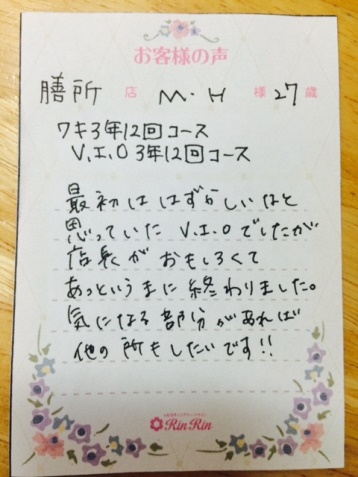 お客様の声
膳所 店 M・H 様 27 歳
ワキ3年12回コース
V.I.O 3年12回コース
最初ははずかしいなと
思っていた V.I.Oでしたが
店長がおもしろくて
あっというまに終わりました。
気になる部分があれば
他の所もしたいです!!
RinRin